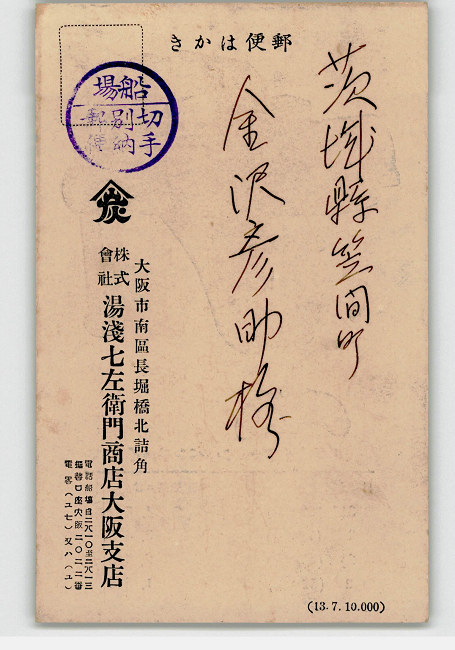 郵便はかき
茨城縣笠間町
金沢彦助様
船場
切手
別納
郵便
大阪市南區長堀橋北詰角
株式會社 湯淺七左衛門商店大阪支店
電話船場自二八一〇至二八一三
振替口座大阪二〇二二番
電畧(ユセ)又ハ(ユ)
(13.7.10.000)